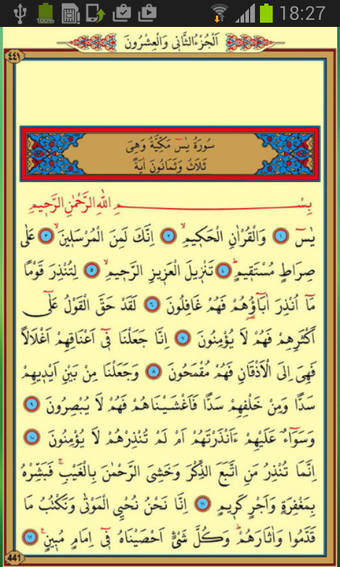 100% 18:27
٤٤١ اَلْجُزْءُ الثَّانِى وَالْعِشْرُونَ
سُورَةُ يٰسٓ مَكِّيَّةٌ وَهِىَ
ثَلَاثٌ وَثَمَانُونَ اٰيَةً
بِسْمِ اللّٰهِ الرَّحْمٰنِ الرَّحِيمِ
يٰسٓ ﴿١﴾ وَالْقُرْاٰنِ الْحَكِيمِۙ ﴿٢﴾ اِنَّكَ لَمِنَ الْمُرْسَلِينَۙ ﴿٣﴾ عَلٰى
صِرَاطٍ مُسْتَقِيمٍۜ ﴿٤﴾ تَنْزِيلَ الْعَزِيزِ الرَّحِيمِۙ ﴿٥﴾ لِتُنْذِرَ قَوْمًا
مَٓا اُنْذِرَ اٰبَٓاؤُ۬هُمْ فَهُمْ غَافِلُونَ ﴿٦﴾ لَقَدْ حَقَّ الْقَوْلُ عَلٰٓى
اَكْثَرِهِمْ فَهُمْ لَا يُؤْمِنُونَ ﴿٧﴾ اِنَّا جَعَلْنَا فِٓى اَعْنَاقِهِمْ اَغْلَالًا
فَهِىَ اِلَى الْاَذْقَانِ فَهُمْ مُقْمَحُونَ ﴿٨﴾ وَجَعَلْنَا مِنْ بَيْنِ اَيْدِيهِمْ
سَدًّا وَمِنْ خَلْفِهِمْ سَدًّا فَاَغْشَيْنَاهُمْ فَهُمْ لَا يُبْصِرُونَ ﴿٩﴾
وَسَوَٓاءٌ عَلَيْهِمْ ءَاَنْذَرْتَهُمْ اَمْ لَمْ تُنْذِرْهُمْ لَا يُؤْمِنُونَ ﴿١٠﴾
اِنَّمَا تُنْذِرُ مَنِ اتَّبَعَ الذِّكْرَ وَخَشِىَ الرَّحْمٰنَ بِالْغَيْبِۚ فَبَشِّرْهُ
بِمَغْفِرَةٍ وَاَجْرٍ كَرِيمٍ ﴿١١﴾ اِنَّا نَحْنُ نُحْيِ الْمَوْتٰى وَنَكْتُبُ مَا
قَدَّمُوا وَاٰثَارَهُمْۜ وَكُلَّ شَىْءٍ اَحْصَيْنَاهُ فِٓى اِمَامٍ مُبِينٍ۟ ﴿١٢﴾
441